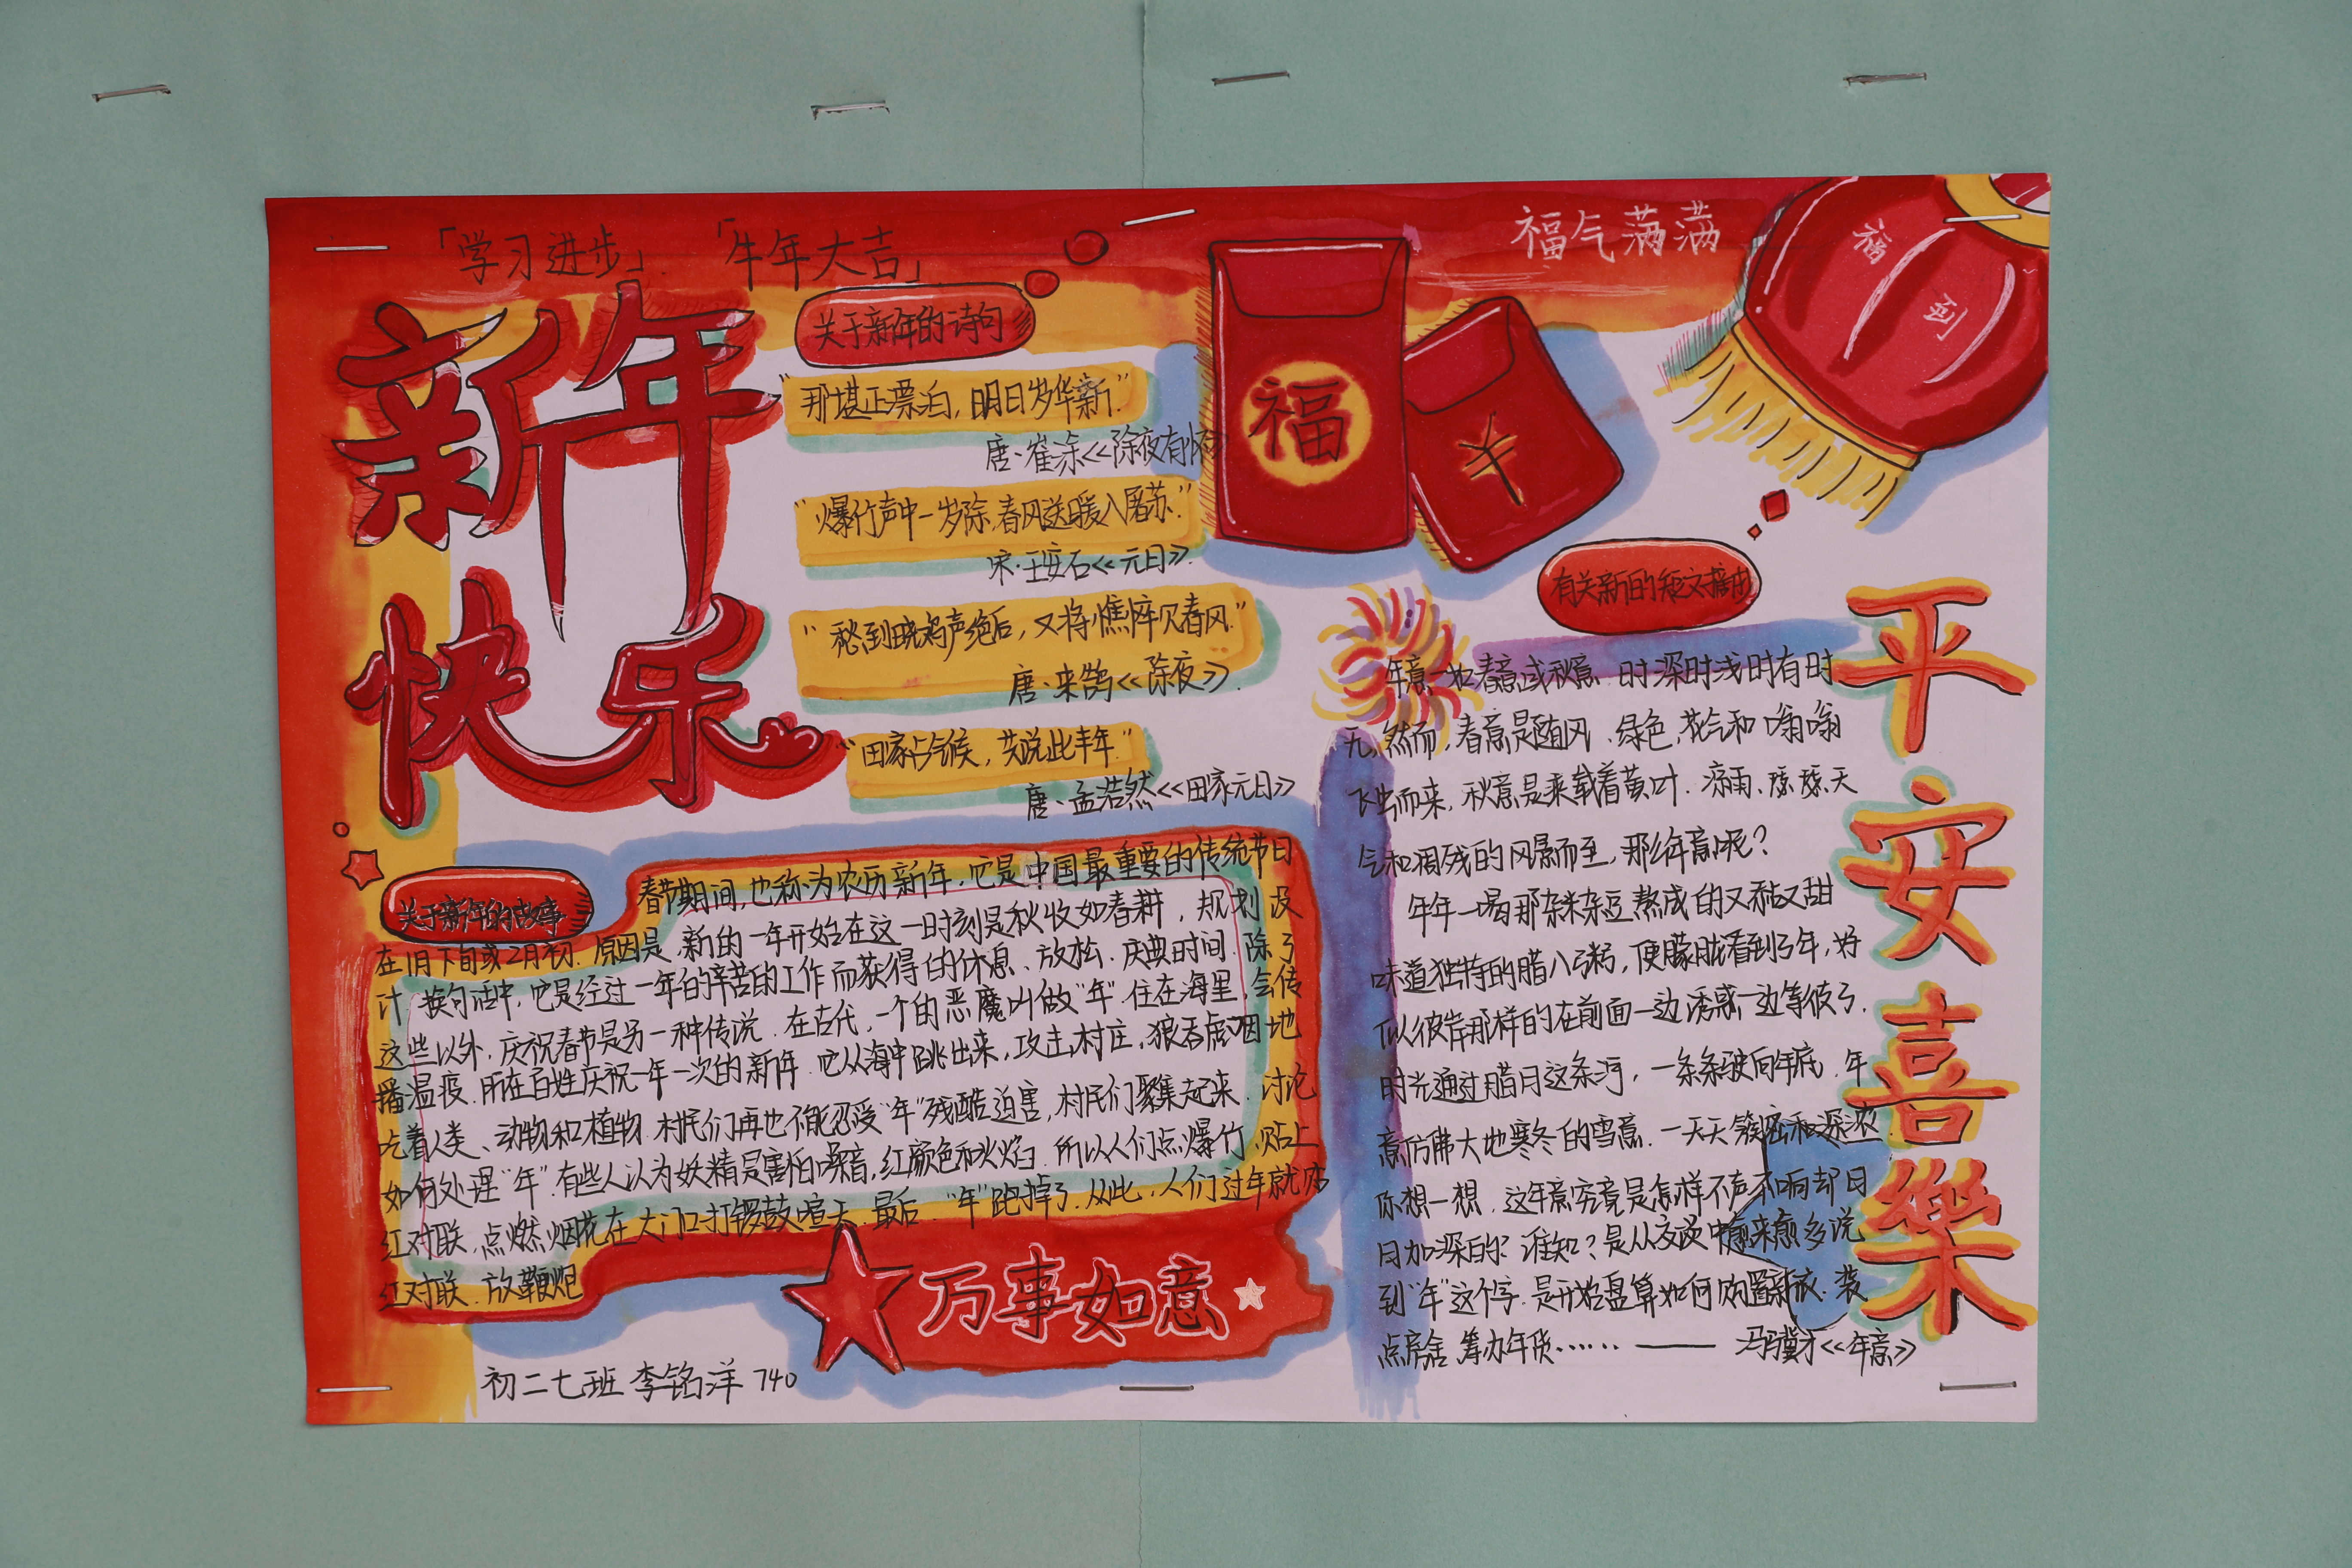 「学习进步」
「牛年大吉」
福气满满
福到
新年
快乐
关于新年的诗句
"那堪正漂泊,明日岁华新."
唐·崔涂<<除夜有怀>>
"爆竹声中一岁除,春风送暖入屠苏."
宋·王安石<<元日>>.
"愁到晓鸡声绝后,又将憔悴见春风."
唐·来鹄<<除夜>>.
"田家占气候,共说此丰年."
唐·孟浩然<<田家元日>>
福
关于新年的故事
春节期间,也称为农历新年.它是中国最重要的传统节日
在1月下旬或2月初.原因是,新的一年开始在这一时刻是秋收如春耕,规划设
计.换句话中,它是经过一年的辛苦的工作而获得的休息、放松.庆典时间.除了
这些以外,庆祝春节是另一种传说.在古代,一个的恶魔叫做"年".住在海里,会传
播温疫.所在百姓庆祝一年一次的新年.它从海中跳出来,攻击村庄,狼吞虎咽地
吃着人类、动物和植物.村民们再也不能忍受"年"残酷迫害,村民们聚集起来.讨论
如何处理"年".有些人认为妖精是害怕噪音,红颜色和火焰.所以人们点爆竹.贴上
红对联,点燃烟花在大门口打锣鼓喧天.最后."年"跑掉了.从此,人们过年就贴
红对联.放鞭炮
万事如意
初二七班 李铭洋 740
有关新的短文摘抄
年意一如春意或秋意.时深时浅时有时
无,然而,春意是随风.绿色,花气和嗡嗡
飞虫而来,秋意是乘载着黄叶.凉雨,瑟瑟天
气和凋残的风景而至,那么年意呢?
年年一喝那杂米杂豆熬成的又黏又甜
味道独特的腊八粥,便朦胧看到了年,好
似彼岸那样的在前面一边诱惑一边等候了.
时光通过腊月这条河,一条条驶向年底.年
意仿佛大地寒冬的雪意.一天天簇密和深浓.
你想一想.这年意究竟是怎样不声不响却日
日加深的?谁知?是从交谈中愈来愈多说
到"年"这个字.是开始盘算如何购置新衣.装
点房舍 筹办年货……——冯骥才<<年意>>
平
安
喜
樂